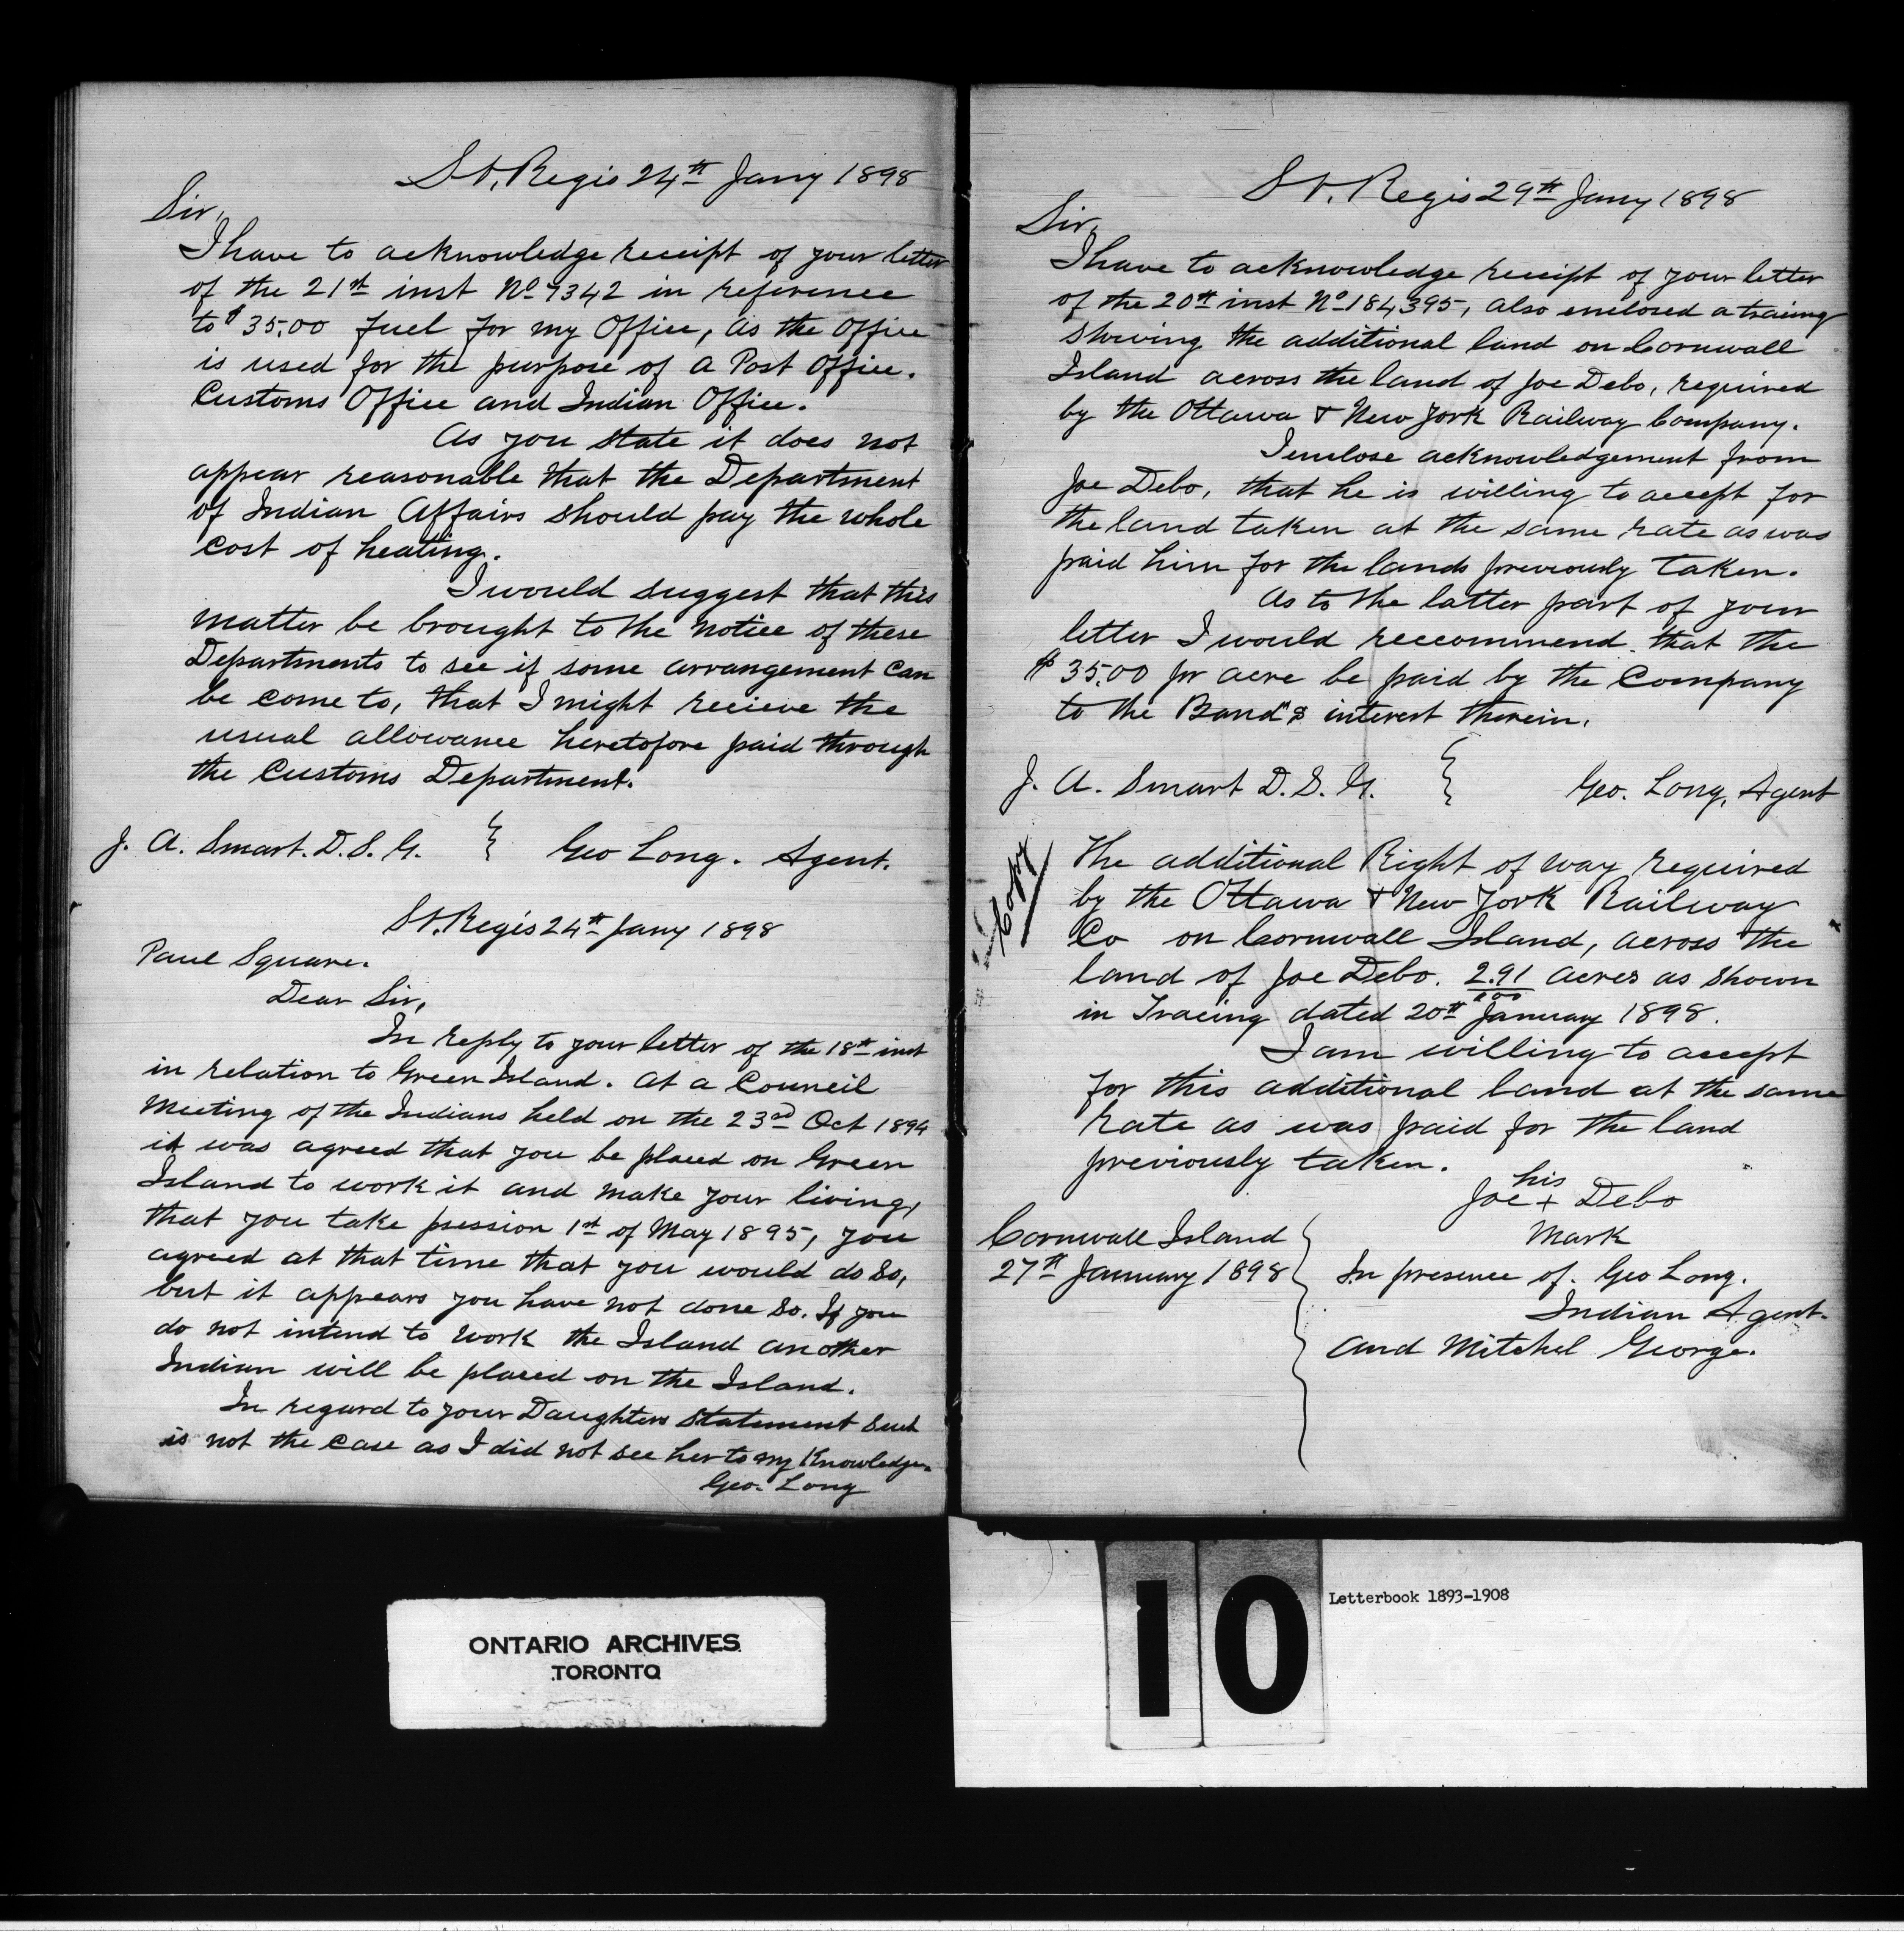 St. Regis 24th Jany 1898
Sir,
I have to acknowledge receipt of your letter
of the 21st inst No 7342 in reference
to $35.00 fuel for my Office, as the Office
is used for the purpose of a Post Office.
Customs Office and Indian Office.
As you state it does not
appear reasonable that the Department
of Indian Affairs should pay the whole
cost of heating.
I would suggest that this
matter be brought to the notice of these
Departments to see if some arrangement can
be come to, that I might recieve the
usual allowance heretofore paid through
the Customs Department.
J. A. Smart. D. S. G. Geo Long. Agent.
St. Regis 24th Jany 1898
Paul Square.
Dear Sir,
In reply to your letter of the 18th inst
in relation to Green Island. At a Council
Meeting of the Indians held on the 23rd Oct 1894
it was agreed that you be placed on Green
Island to work it and make your living,
that you take psession 1st of May 1895, you
agreed at that time that you would do so,
but it appears you have not done so. If you
do not intend to work the Island another
Indian will be placed on the Island.
In regard to your Daughters statement such
is not the case as I did not see her to my Knowledge.
Geo. Long
St. Regis 29th Jany 1898
Sir,
I have to acknowledge receipt of your letter
of the 20th inst No 184,395, also enclosed a tracing
showing the additional land on Cornwall
Island across the land of Joe Debo, required
by the Ottawa & New York Railway Company.
I enclose acknowledgement from
Joe Debo, that he is willing to accept for
the land taken at the same rate as was
paid him for the lands previously taken.
As to the latter part of your
letter I would reccommend that the
$35.00 pr acre be paid by the Company
to the Band's interest therein.
J. A. Smart D. S. G. Geo. Long, Agent
Copy
The additional Right of way required
by the Ottawa & New York Railway
Co on Cornwall Island, across the
land of Joe Debo. 2.91/100 acres as shown
in Tracing dated 20th January 1898.
I am willing to accept
for this additional land at the same
rate as was paid for the land
previously taken.
his
Joe + Debo
Mark
Cornwall Island
27th January 1898
In presence of. Geo Long.
Indian Agent.
and Mitchel George.
10
Letterbook 1893-1908
ONTARIO ARCHIVES
TORONTO